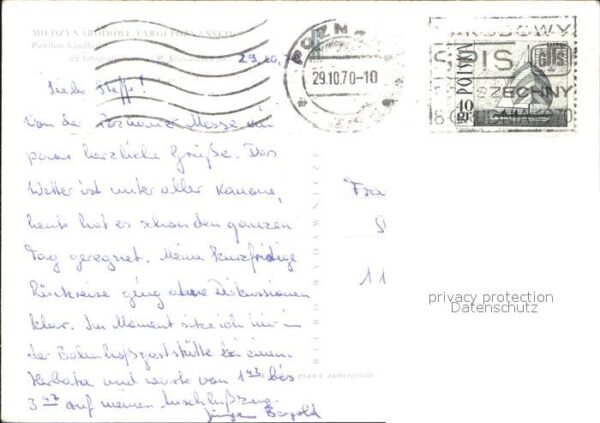 MIĘDZYNARODOWE TARGI POZNAŃSKIE
Pawilon
29.10.70
POZN
29.10.70-10
SPIS
POWSZECHNY
8 GRUDNIA 1970
POLSKA
40 gr
Liebe Steffi!
Von der Poznaner Messe ein
paar herzliche Grüße. Das
Wetter ist unter aller Kanone,
heute hat es schon den ganzen
Tag geregnet. Meine kurzfristige
Rückreise ging ohne Diskussionen
klar. Im Moment sitze ich hier in
der Bahnhofsgaststätte bei einem
Herbata und warte von 1 bis
3 47 auf meinen Anschlußzug.
Jürgen
Frau
11
BIURO WYDAWNICZE
prawa zastrzeżone
privacy protection
Datenschutz